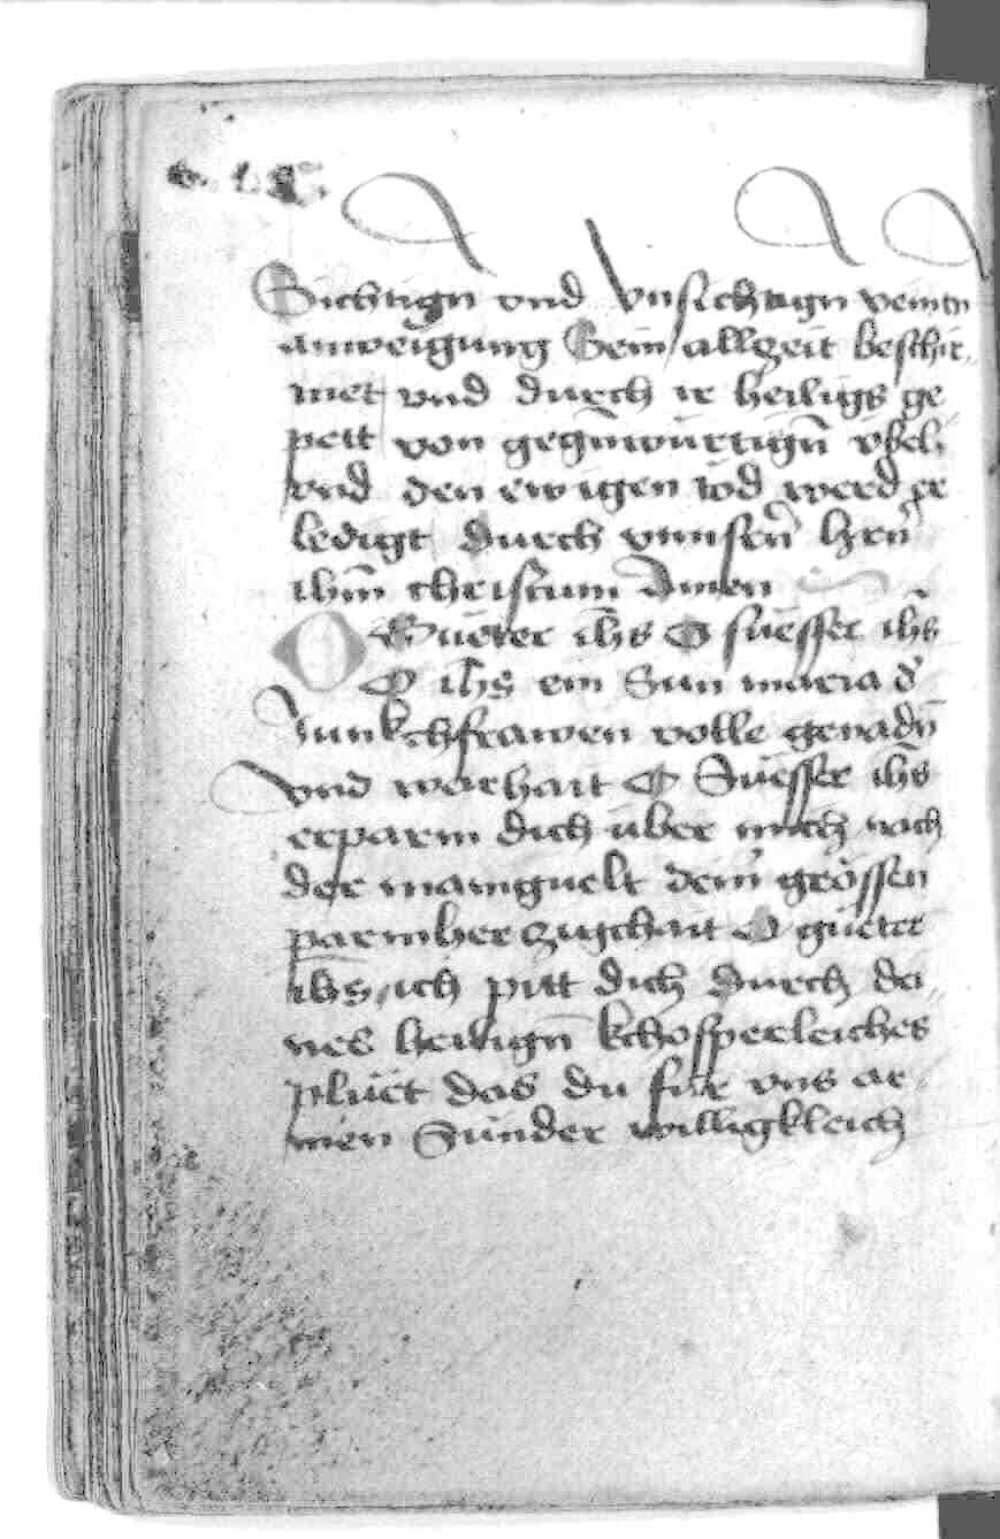 Sichtign vnd vnsichtign veintn
anweigung Sein allzeit beschir„
met vnd durch ir heiligs ge
pett von gegn̄würtign̄ v̈bel
vnd den ewigen tod werd er
ledigt durch vnnsern̄ hern̄
ihm̄ christum Amen
O Güeter ihs O süesser ihs̄
O ihs̄ ein Sun maria d'
Junkchfrawen volle genadn̄
vnd warhait O Süesser ihs̄
erparm dich über mich nach
der mainguelt dein' grössen
parmherzigchait O güeter
ihs, ich pitt dich durch dei„
nes heilign̄ kchosperleiches
plüet das du für vns ar
men Sünder willigkleich